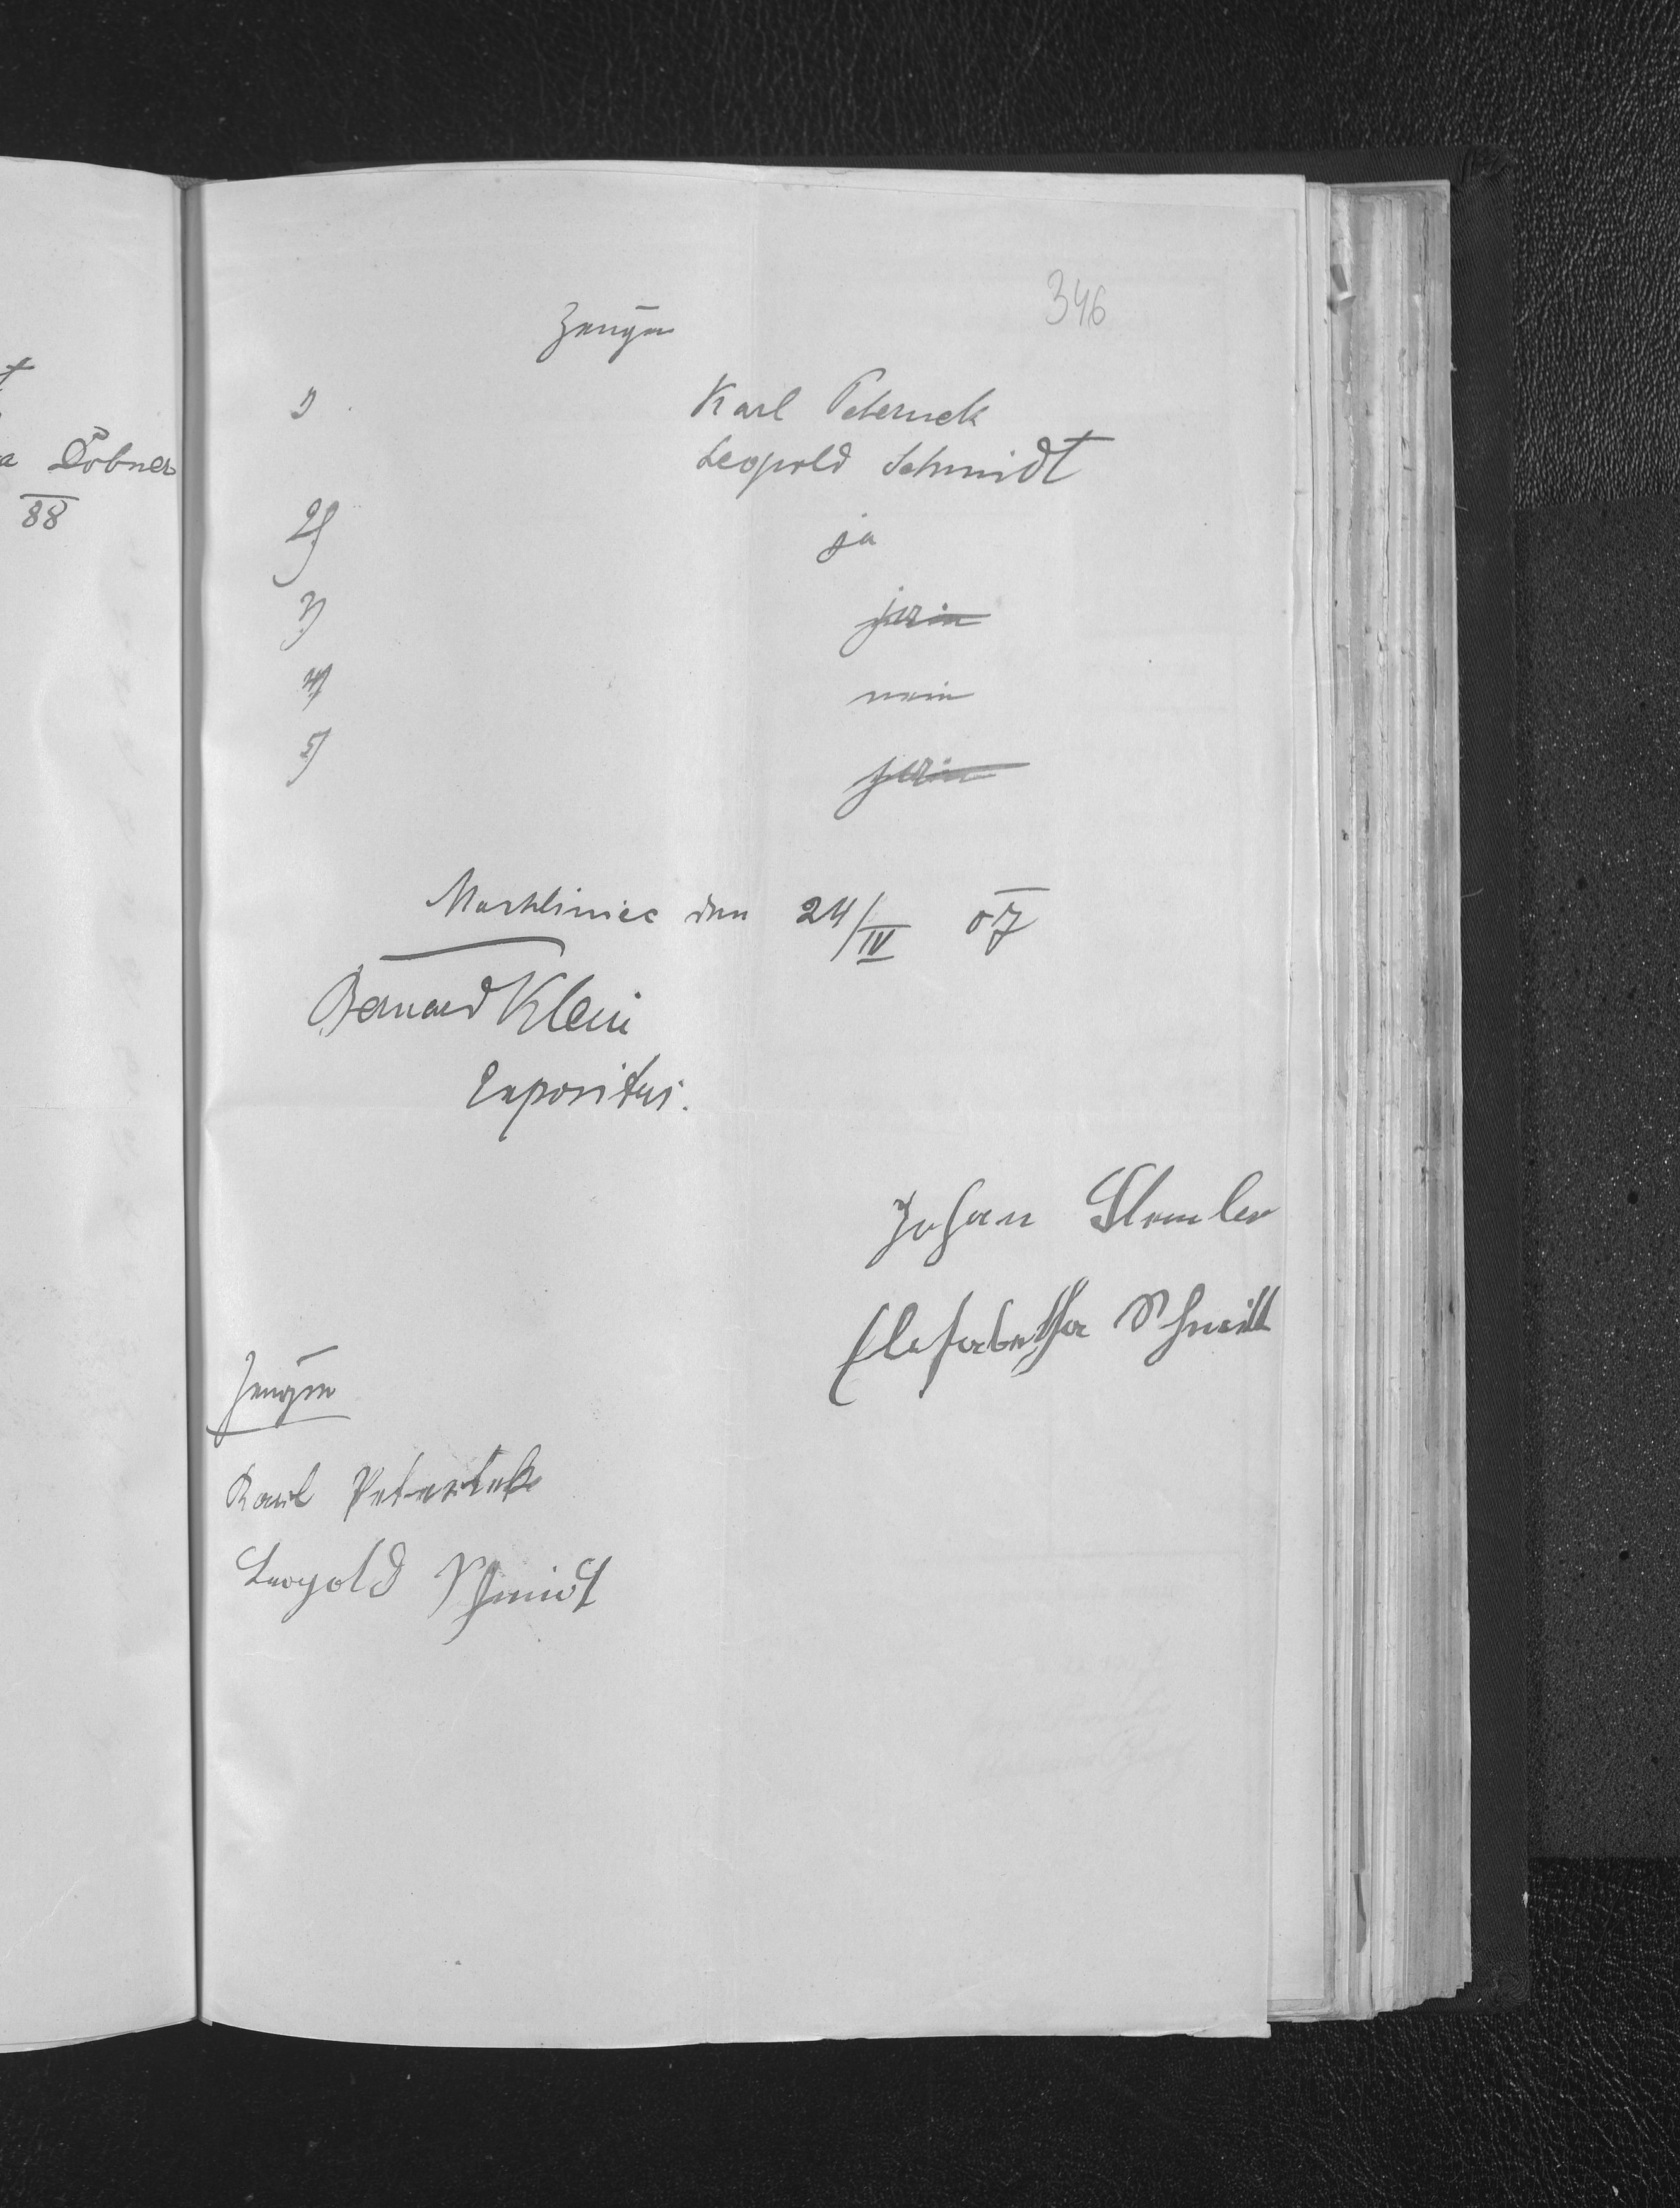 t
a Döbner
88
346
Zeugen
1)
Karl Peternek
Leopold Schmidt
2)
ja
3)
4)
nein
5)
Machliniec den 24/IV 07
Bernard Klein
Expositus.
Johan
Elisabetha Schmidt
Zeugen
Karl
Leopold Schmidt